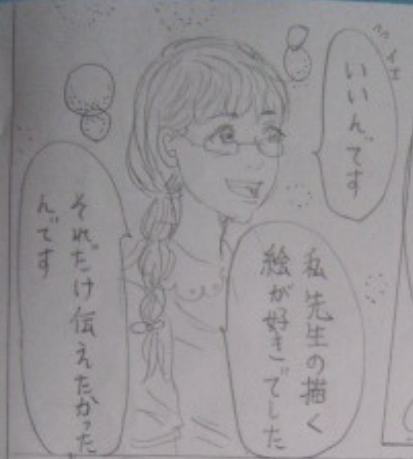 いいんです
私 先生の描く
絵が好きでした
それだけ伝えたかった
んです